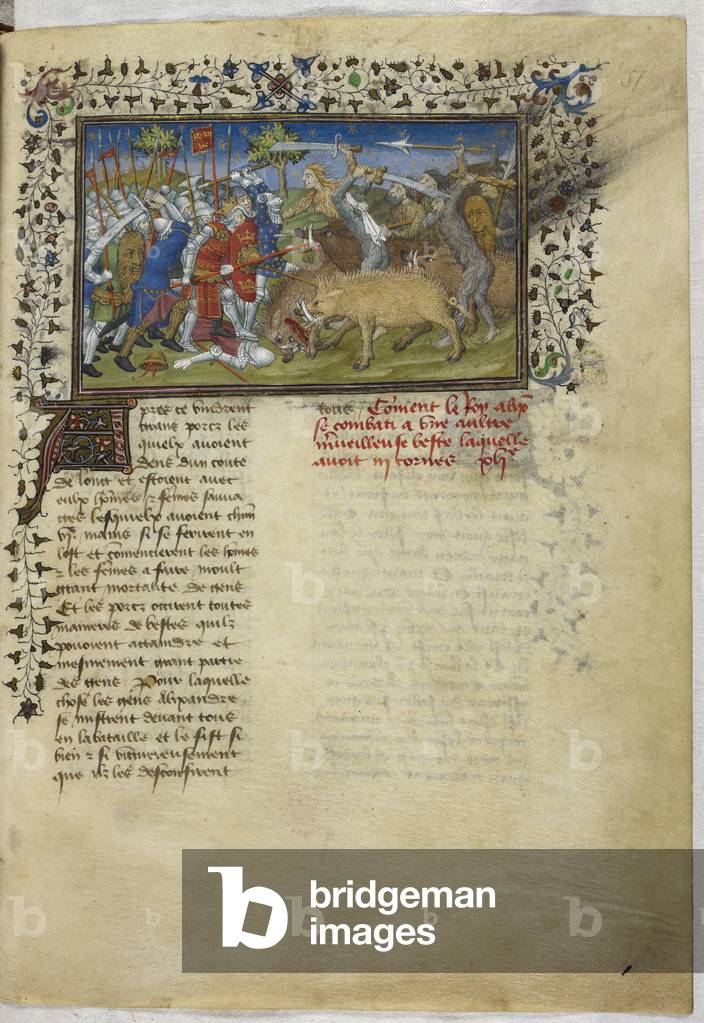 51
Apres ce vindrent
grant porcz les
quielx auoient
dens dun coute
de lonc et estoient auec
eulx hōmes z femes sauua
ges lesquielx auoient chūn
vj. mains si se ferirent en
lost et cōmencierent les hōmes
z les femes a faire moult
grant mortalite de gens
Et les porcz occirent toutes
manieres de bestes quilz
pouoient attaindre et
mesmement grant partie
des gens Pour laquelle
chose les gens alixandre
se mistrent deuant tous
en la bataille et le fist si
bien z si viguereusement
que ilz les desconfirent
tous Cōment le Roy alixᵉ
se combati a vne aultre
merueilleuse beste laquelle
auoit iij cornes
bridgeman
images